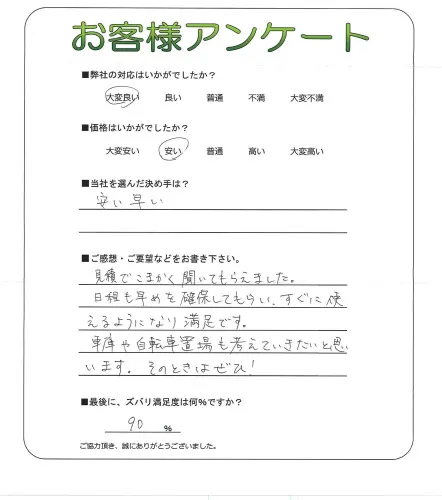 お客様アンケート
■弊社の対応はいかがでしたか？
大変良い 良い 普通 不満 大変不満
■価格はいかがでしたか？
大変安い 安い 普通 高い 大変高い
■当社を選んだ決め手は？
安い 早い
■ご感想・ご要望などをお書き下さい。
見積でこまかく聞いてもらえました。
日程も早めを確保してもらい、すぐに使
えるようになり満足です。
車庫や自転車置場も考えていきたいと思
います。そのときはぜひ!
■最後に、ズバリ満足度は何%ですか？
90 %
ご協力頂き、誠にありがとうございました。